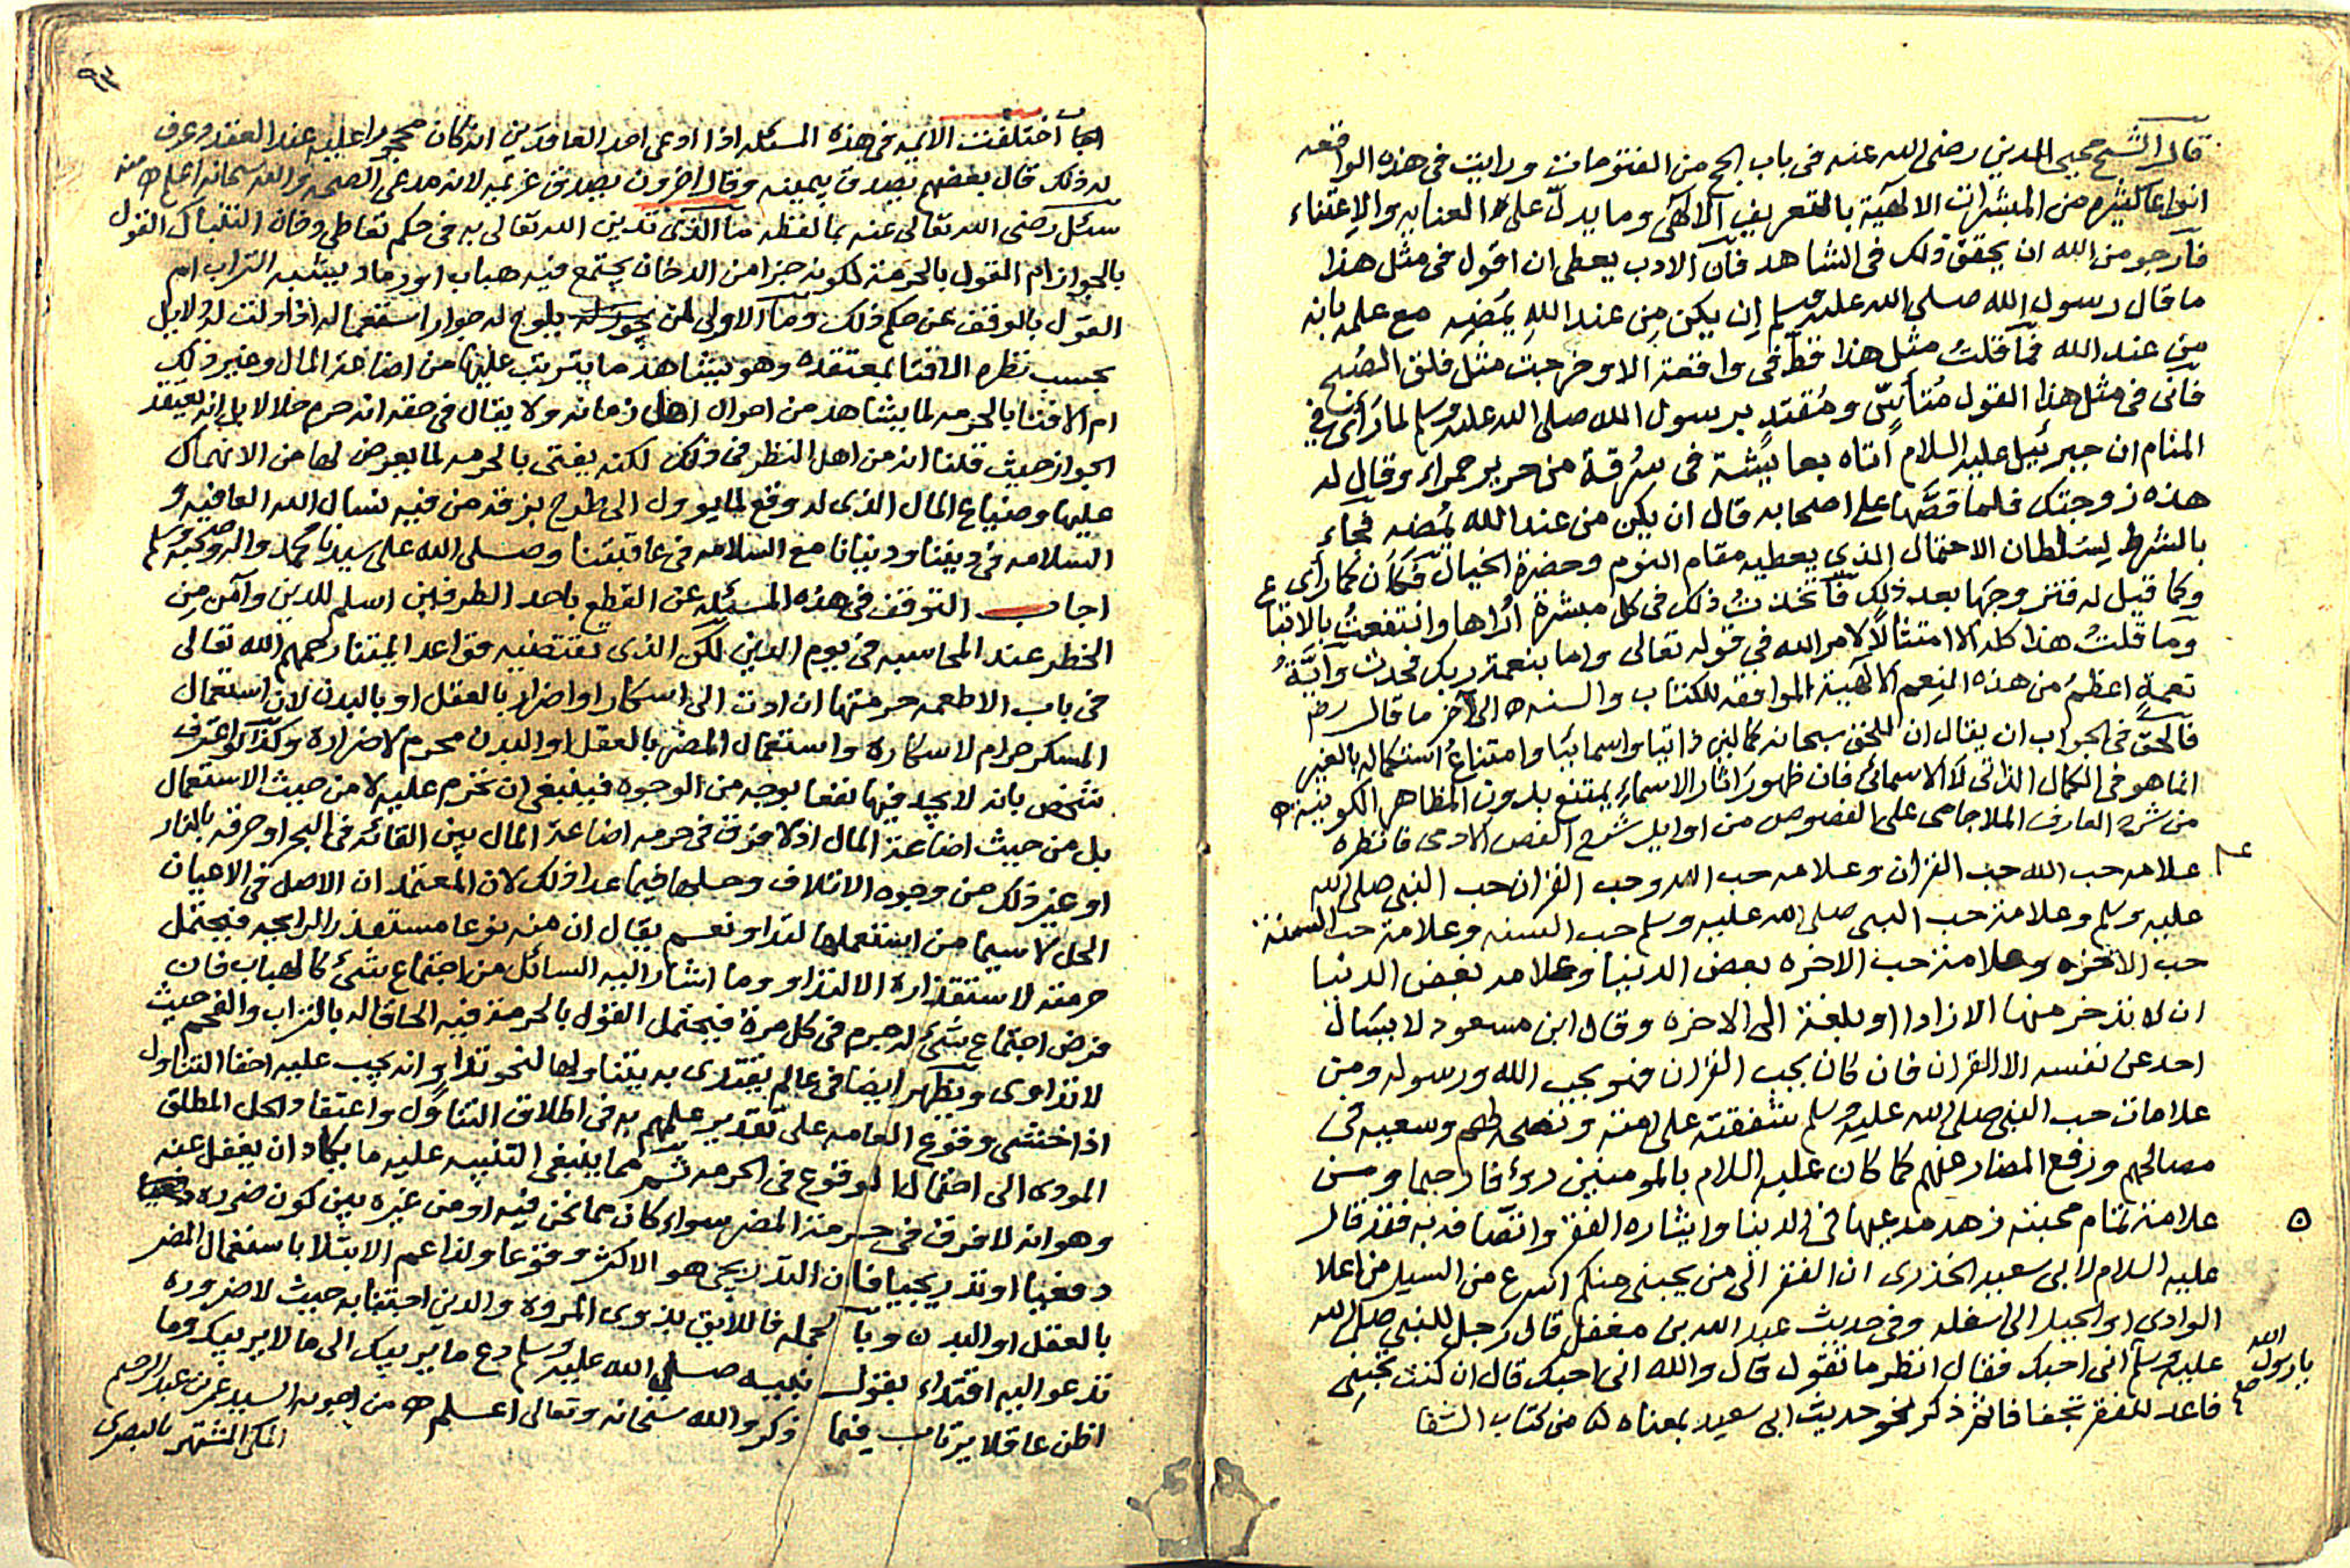 قال الشيخ محيى الدين رضى الله عنه فى باب الحج من الفتوحات ورايت فى هذه الواقعه
انواعا كثيره من المبشرات الالهيّة بالتعريف الآلهى وما يدلّ على العنايه والاعتناء
فارجو من الله ان يحقق ذلك فى الشاهد فان الادب يعطى ان اقول فى مثل هذا
ما قال رسول الله صلى الله عليه وسلم إن يكن مِن عند الله يُمضِه مع علمه بانه
مِن عند الله فما قلتُ مثل هذا قط فى واقعة الا وخرجت مثل فلق الصُبح
فانى فى مثل هذا القول مُتأسّى ومُقتدٍ برسول الله صلى الله عليه وسلم لما رَأى فى
المنام ان جبرئيل عليه السلام أتاه بعايشة فى سَرَقة من حرير حمراء وقال له
هذه زوجتك فلما قصَّها على اصحابه قال ان يكن من عند الله يُمضه فجاء
بالشرط لِسُلطان الاحتمال الذى يعطيه مقام النوم وحضرة الخيال فكان كما رأى
وكما قيل له فتزوجها بعد ذلك فاتخذتُ ذلك فى كل مبشرة أراها وانتفعتُ بالاتباع
وما قلتُ هذا كله الا امتثالًا لامر الله فى قوله تعالى واما بنعمة ربك فحدث وايّةُ
نعمةٍ اعظمُ من هذه النِعم الالهية الموافقه للكتاب والسنه ه الى آخر ما قال رضه
فالحق فى الجواب ان يقال ان للحق سبحانه كمالين ذاتيا واسمائيا وامتناعُ استكماله بالغير
انما هو فى الكمال الذاتى لا الاسمائى فان ظهور آثار الاسماء يمتنع بدون المظاهر الكونيه ه
من شرح العارف الملا جامى على الفصوص من اوايل شرح الفص الادمى فانظره
علامه حب الله حب القران وعلامه حب الله وحب القران حب النبى صلى الله
عليه وسلم وعلامة حب النبى صلى الله عليه وسلم حب السنه وعلامة حب السنة
حب الاخره وعلامة حب الاخره بغض الدنيا وعلامه بغض الدنيا
ان لا يدخر منها الا زادا او بلغة الى الاخره وقال ابن مسعود لا يسال
احد عن نفسه الا القران فان كان يحب القران فهو يحب الله ورسوله ومن
علامات حب النبى صلى الله عليه وسلم شفقته على امته ونصحه لهم وسعيه فى
مصالحهم ورفع المضار عنهم كما كان عليه السلام بالمومنين رؤفا رحيما ومن
علامة تمام محبته زهد مدعيها فى الدنيا وايثاره الفقر واتصافه به فقد قال
عليه السلام لابى سعيد الخدرى ان الفقر الى من يحبنى منكم اسرع من السيل من اعلا
الوادى او الجبل الى اسفله وفى حديث عبد الله بن مغفل قال رجل للنبى صلى الله
عليه وسلم انى احبك فقال انظر ما تقول قال والله انى احبك قال ان كنت تحبنى
يا رسول الله
فاعد للفقر تجفافا ثم ذكر نحو حديث ابى سعيد بمعناه ه من كتاب الشفا
٩٣
اختلفت الائمه فى هذه المسئله اذا ادعى احد العاقدين انه كان محجورا عليه عند العقد وعرف
له ذلك قال بعضهم يصدق بيمينه وقال اخرون يصدق غريمه لانه مدعى الصحه والله سبحانه اعلم ه منه
سئل رضى الله تعالى عنه بما لفظه ما الذى تدين الله تعالى به فى حكم تعاطى دخان التنباك القول
بالجواز ام القول بالحرمة لكونه جزا من الدخان يجتمع فيه هباب او رماد يشبه التراب ام
القول بالوقف عن حكم ذلك وما الاولى لمن يلوح له جواز استعماله اذا ولت له الدلايل
بحسب نظره الافتا بمعتقده وهو يشاهد ما يترتب عليها من اضاعة المال وغير ذلك
ام الافتا بالحرمه لما يشاهد من احوال اهل زمانه ولا يقال فى حقه انه حرم حلالا بل انه يعتقد
الجواز حيث قلنا انه من اهل النظر فى ذلك لكنه يفتى بالحرمه لما يعرض لها من الانهماك
عليها وضياع المال الذى له وقع لما يوول الى طرح بزقه من فيه نسال الله العافيه و
السلامه فى ديننا ودنيانا مع السلامه فى عاقبتنا وصلى الله على سيدنا محمد واله وصحبه وسلم
اجاب التوقف فى هذه المسئله عن القطع باحد الطرفين اسلم للدين وآمن من
الخطر عند المحاسبه فى يوم الدين لكن الذى تقتضيه قواعد ايمتنا رحمهم الله تعالى
فى باب الاطعمه حرمتها ان ادت الى اسكار او اضرار بالعقل او بالبدن لان استعمال
المسكر حرام لاسكاره واستعمال المضر بالعقل او البدن محرم لاضراره وكذا لو اعترف
شخص بانه لا يجد فيها نفعا بوجه من الوجوه فينبغى ان تحرم عليه لا من حيث الاستعمال
بل من حيث اضاعة المال اذ لا فرق فى حرمه اضاعة المال بين القائه فى البحر او حرقه بالنار
او غير ذلك من وجوه الاتلاف وحلها فيما عدا ذلك لان المعتمد ان الاصل فى الاعيان
الحل لا سيما من استعملها لتداو نعم يقال ان منه نوعا مستقذر الرايحه فيحتمل
حرمته لاستقذاره الا لتداو وما اشار اليه السائل من اجتماع شئ كالهباب فان
فرض اجتماع شئ له جرم فى كل مرة فيحتمل القول بالحرمة فيه الحاقا له بالتراب والفحم حيث
لا تداوى ويظهر ايضا فى عالم يقتدى به يتناولها لنحو تداو انه يجب عليه اخفا التناول
اذا خشى وقوع العامه على تقدير علمهم به فى اطلاق التناول واعتقاد الحل المطلق
المودى الى احتمال الوقوع فى الحرمه ثم مما ينبغى التنبيه عليه ما يكاد ان يغفل عنه
وهو انه لا فرق فى حرمة المضر سواء كان مما نحن فيه او من غيره بين كون ضرره
دفعيا او تدريجيا فان التدريجى هو الاكثر وقوعا ولذا عم الابتلا باستعمال المضر
بالعقل او البدن وبالجمله فاللايق بذوى المروه والدين اجتنابه حيث لا ضروره
تدعو اليه اقتداء بقول نبيه صلى الله عليه وسلم دع ما يريبك الى ما لا يريبك وما
اظن عاقلا يرتاب فيما ذكر والله سبحانه وتعالى اعلم ه من اجوبه السيد عمر بن عبد الرحيم
المكى المشتهر بالبصرى